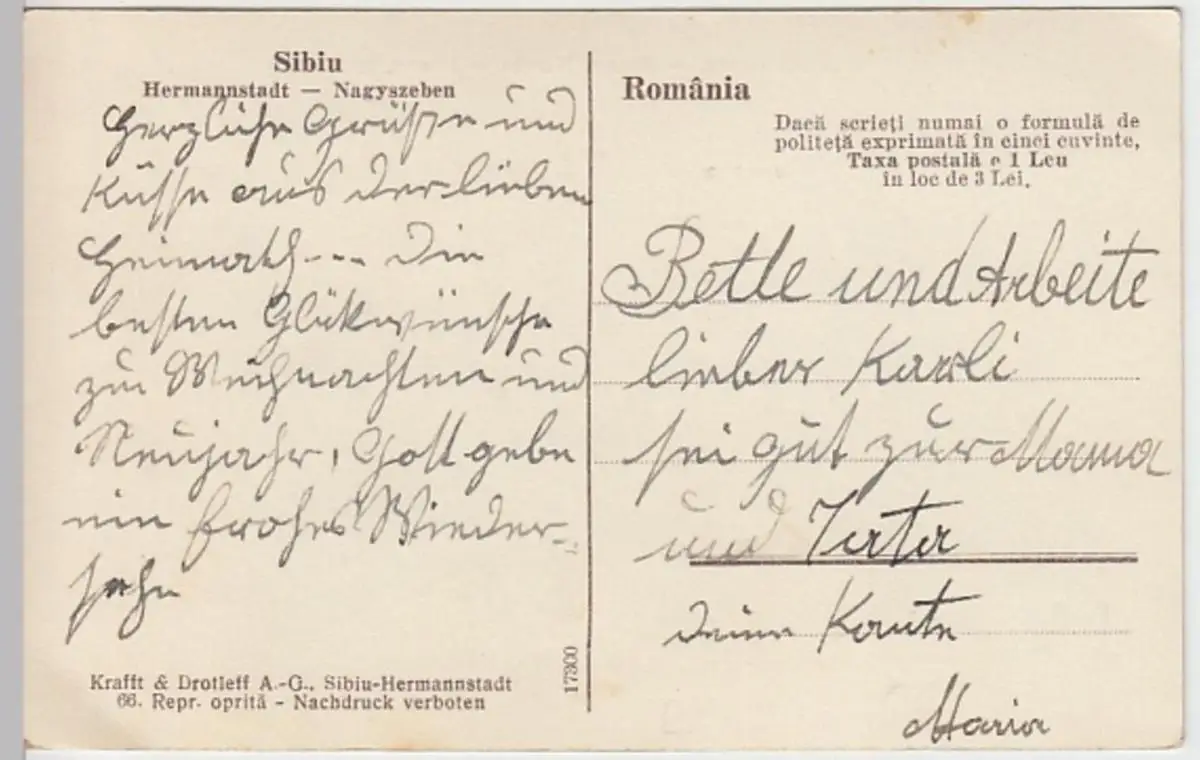 Sibiu
Hermannstadt — Nagyszeben
Herzliche Grüße und
Küsse aus der lieben
Heimath --- Die
besten Glückwünsche
zu Weihnachten und
Neujahr, Gott gebe
ein frohes Wieder-
sehn
Krafft & Drotleff A.-G., Sibiu-Hermannstadt
66. Repr. oprită - Nachdruck verboten
17300
România
Dacă scrieți numai o formulă de
politeță exprimată în cinci cuvinte,
Taxa postală e 1 Leu
în loc de 3 Lei.
und Arbeite
lieber Karli
sei gut zur Mama
und Tata
Deine
Maria